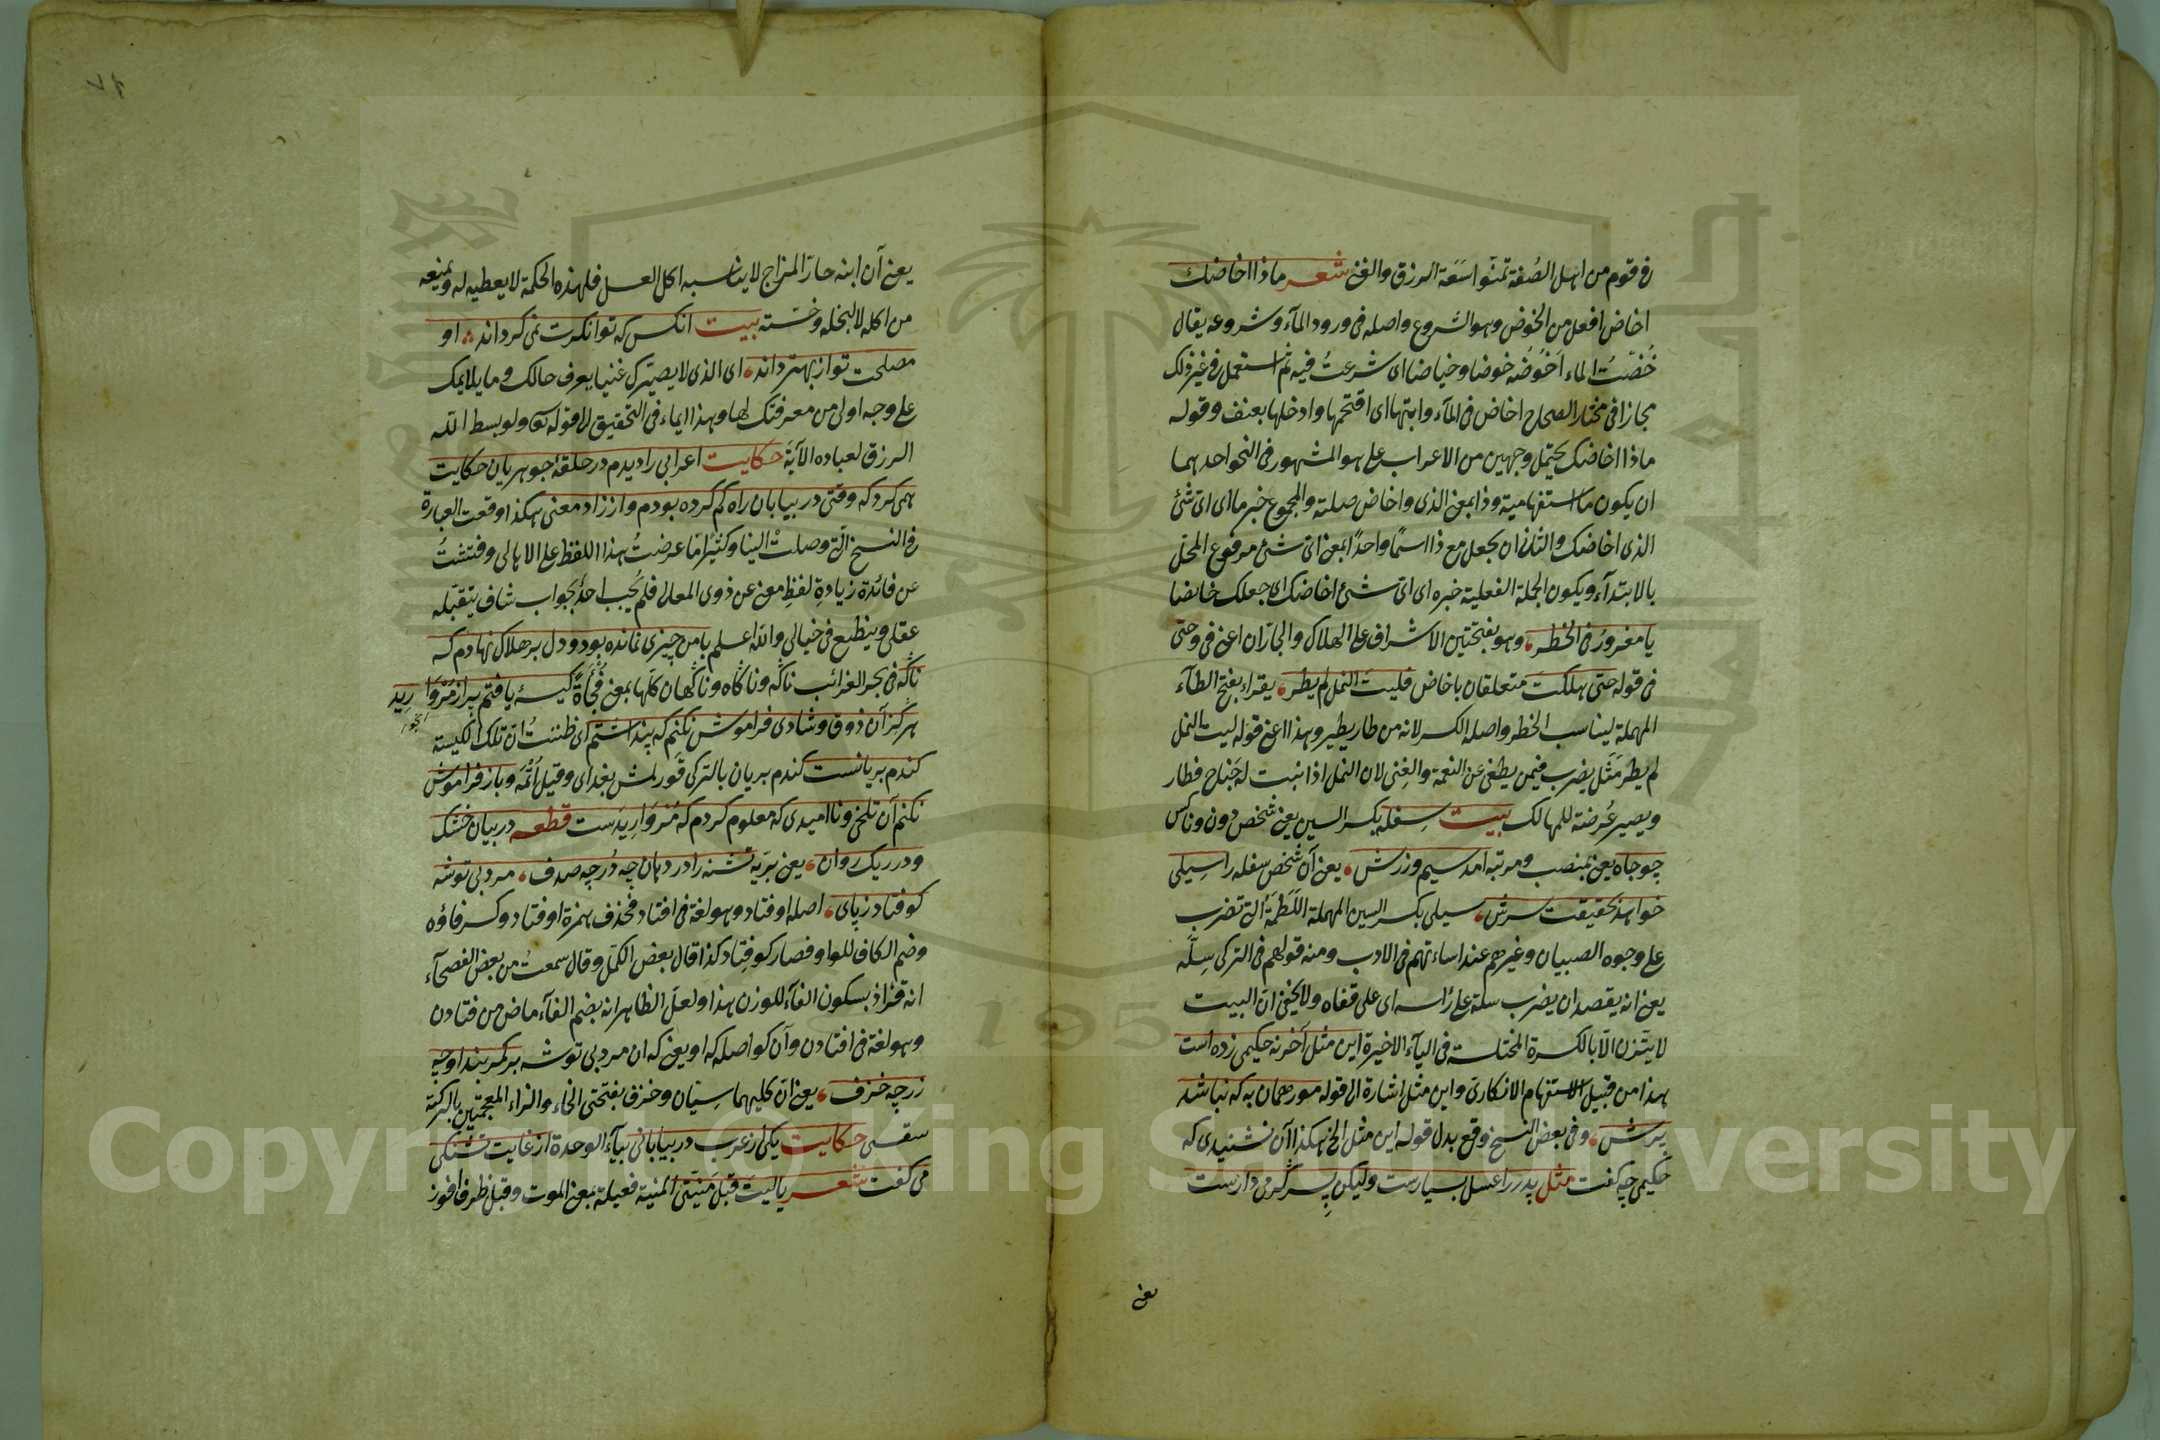 فى قوم من اهل الصُفة تمنّوا سَعَة الرزق والغنى شعر ماذا اخاضك
اخاض افعل من الخوض وهو الشروع واصله فى ورود المآء وشروعه يقال
خُضتُ الماء اخُوضُه خوضا وخياضا اى شرعتُ فيه ثم استعمل فى غير ذلك
مجازا فى مختار الصحاح اخاض فى المآء دابتها اى اقتحمها وادخلها بعنف وقوله
ماذا اخاضك يحتمل وجهين من الاعراب على هو المشهور فى النحو احدهما
ان يكون ما استفهامية وذا بمعنى الذى واخاض صلته والمجموع خبر ما اى اىّ شئ
الذى اخاضك والثانى ان يجعل مع ذا اسمًا واحدًا بمعنى اىّ شئ مرفوع المحل
بالابتدآء ويكون الجملة الفعلية خبره اى اىّ شئ اخاضك اى جعلك خائضا
يا مغرورُ فى الخطر وهو بفتحتين الاشراف على الهلاك والجارّان اعنى فى وحتى
فى قوله حتى هلكت متعلقان باخاض فليت النمل لم يطر يقراء بفتح الطآء
المهملة ليناسب الخطر واصله الكسر لانه من طار يطير وهذا اعنى قوله ليت النمل
لم يطر مَثَل يضرب فيمن يطغى عن النعمة والغِنى لان النمل اذا نبت له جَناح فطار
ويصير عُرضة للمهالك بيت سِفله بكسر السين يعنى شخص دون وناكس
چو جاه يعنى بمنصب ومرتبه آمد سيم وزرش يعنى آن شخص سفله را سِيلى
خواهد بحقيقت سرش سيلى بكسر السين المهملة اللَطمَةُ التى تضرب
على وجوه الصبيان وغيرهم عند اساءتهم فى الادب ومنه قولهم فى التركى سِلّه
يعنى انه يقصد ان يضرب سلة على رأسه اى على قفاه ولا يخفى انّ البيت
لا يتّزن الّا بالكسرة المختلسة فى اليآء الاخيرة اين مثل آخر نه حكيمى زده است
هذا من قبيل الاستفهام الانكارى واين مثل اشارة الى قوله مور همان به كه نباشد
پرش وفى بعض النسخ وقع بدل قوله اين مثل الخ هكذا آن نشنيدى كه
حكيمى چه گفت مثل پدر را عسل بسيارست وليكن پسر گرمى دارست
يعنى
يعنى آن ابنه حارّ المزاج لا يناسبه اكل العسل فلهذه الحكمة لا يعطيه له ويمنعه
من اكله لا لبخله وخسّته بيت آنكس كه توانگرت نمى گرداند او
مصلحت تو از تو بهتر داند اى الذى لا يصيّرك غنيا يعرف حالك وما يلايمك
على وجه اولى من معرفتك لها وهذا ايماء فى التحقيق الى قوله تع ولو بسط الله
الرزق لعباده الآية حكايت اعرابى را ديدم در حلقهٔ جوهريان حكايت
همى كرد كه وقتى در بيابان راه گم كرده بودم واز زاد معنى هكذا وقعت العبارة
فى النسخ التى وصلت الينا وكثيرًا ما عرضتُ هذا اللفظ على الاهالى وفتشتُ
عن فائدة زيادةِ لفظِ معنى عن ذوى المعالى فلم يُجِب احدٌ بجواب شاف يتقبّله
عقلى وينطبع فى خيالى والله اعلم با من چيزى نمانده بود ودل بر هلاك نهادم كه
ناگه فى بحر الغرائب ناگه وناگاه وناگهان كلها بمعنى فُجأةً كيسهٔ يافتم پر از مُروَارِيد
هرگز آن ذوق وشادى فراموش نكنم كه پنداشتم اى ظننتُ انّ تلك الكيسة
گندم بريانست گندم بريان بالتركى قَورلمش بغداى وقيل اَتْمَه وباز فراموش
نكنم آن تلخى ونااميدى كه معلوم كردم كه مُروَارِيدَست قطعه در بيان خشك
ودر ريك روان يعنى بَريّه تشنه را در دهان چه دُر چه صدف مرد بى توشه
كوفتاد ز پاى اصله اوفتاد وهو لغة فى افتاد فحذف همزة اوفتاد وكسر فاؤه
وضم الكاف للواو فصار كوفِتاد كذا قال بعض الكمّل وقال سمعتُ من بعض الفصحآء
انه قرا ذ بسكون الفآء للوزن هذا ولعل الظاهر انه بضم الفآء ماض من فتادن
وهو لغة فى افتادن وآن كو اصله كه او يعنى كه آن مرد بى توشه بر كمربند او چه
زر چه خزف يعنى انّ كليهما سيّان وخزف بفتحتى الخاء والزاء المعجمتين بالتركية
سقسى حكايت يكى از عرب در بيابانى بيآء الوحدة از غايت تشنگى
مى گفت شعر ياليت قبل مَنيّتى المنية فعيلة بمعنى الموت وقبل ظرف افوز